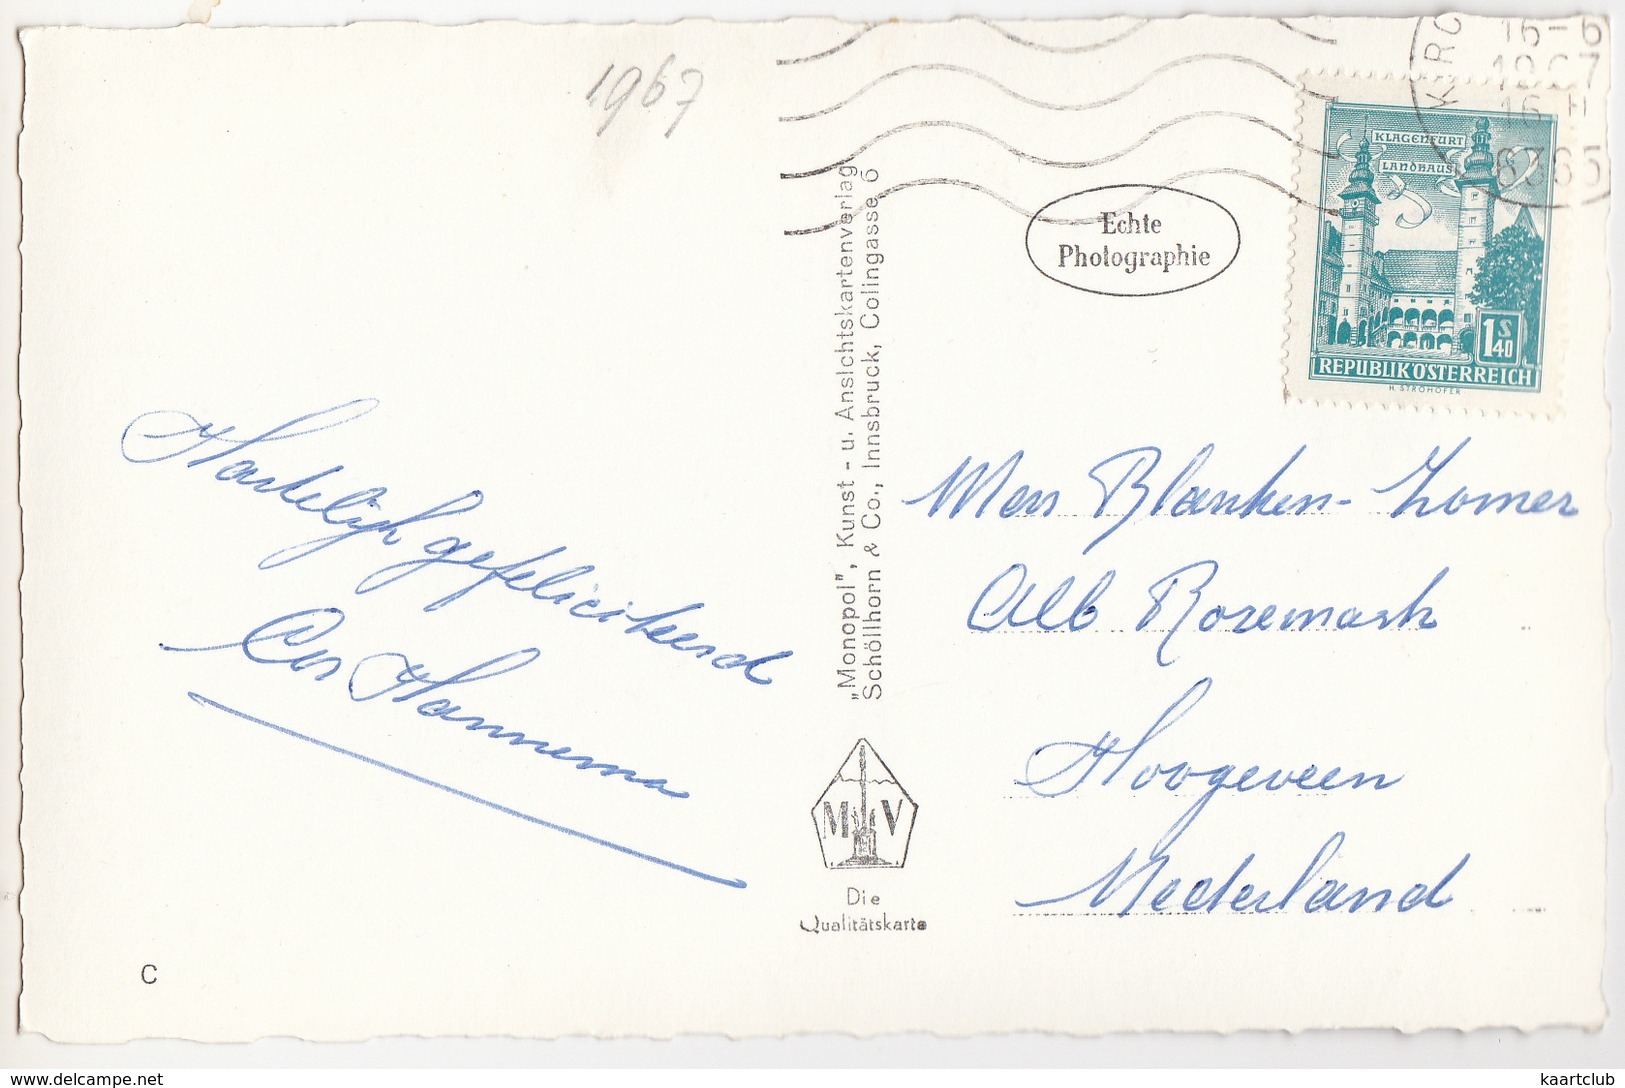 1967
Hartelijk gefeliciteerd
Cor Hannema
C
„Monopol", Kunst - u. Ansichtskartenverlag
Schöllhorn & Co., Innsbruck, Colingasse 6
M V
Die
Qualitätskarte
Echte
Photographie
16-6
1967
6365
KLAGENFURT
LANDHAUS
1 S 40
REPUBLIK ÖSTERREICH
H. STROHOFER
Blanken-Zomer
Alb Rozemark
Hoogeveen
Nederland
delcampe.net
kaartclub